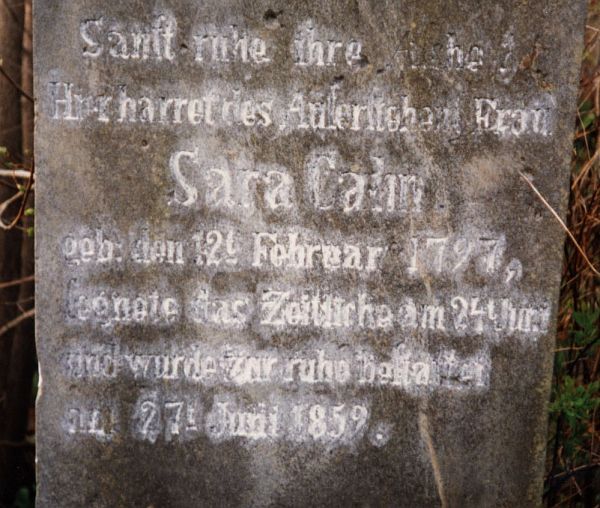 Sanft ruhe ihre Asche!
Hier harret des Auferstehens, Frau
Sara Cahn
geb: den 12t Februar 1797,
segnete das Zeitliche am 24t Juni
und wurde zur ruhe bestattet
am 27t Junii 1859.